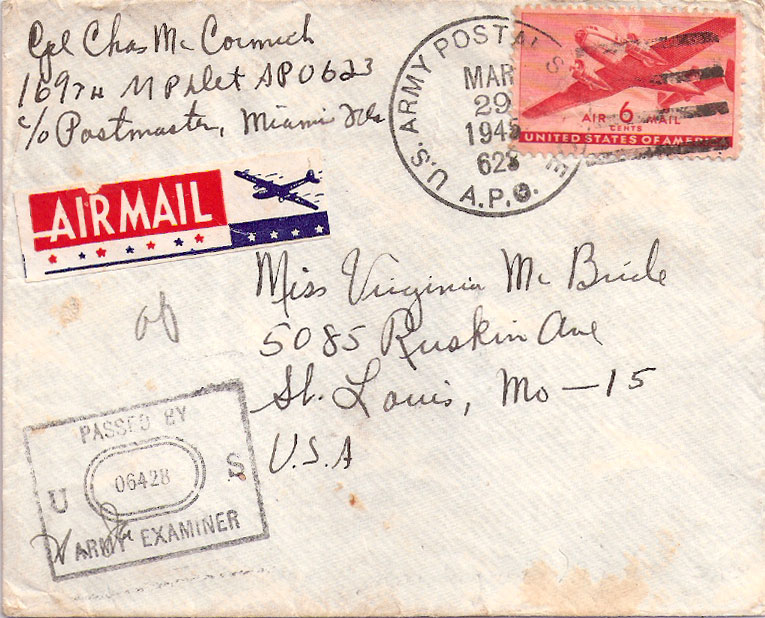 Cpl Chas Mc Cormick
169TH M P Det APO 623
c/o Postmaster, Miami Fla
U.S. ARMY POSTAL SERVICE
MAR
29
1945
623
A.P.O.
AIR 6 MAIL
CENTS
UNITED STATES OF AMERICA
AIR MAIL
Miss Virginia Mc Bride
5085 Ruskin Ave
St. Louis, Mo — 15
U.S.A
PASSED BY
U 06428 S
ARMY EXAMINER